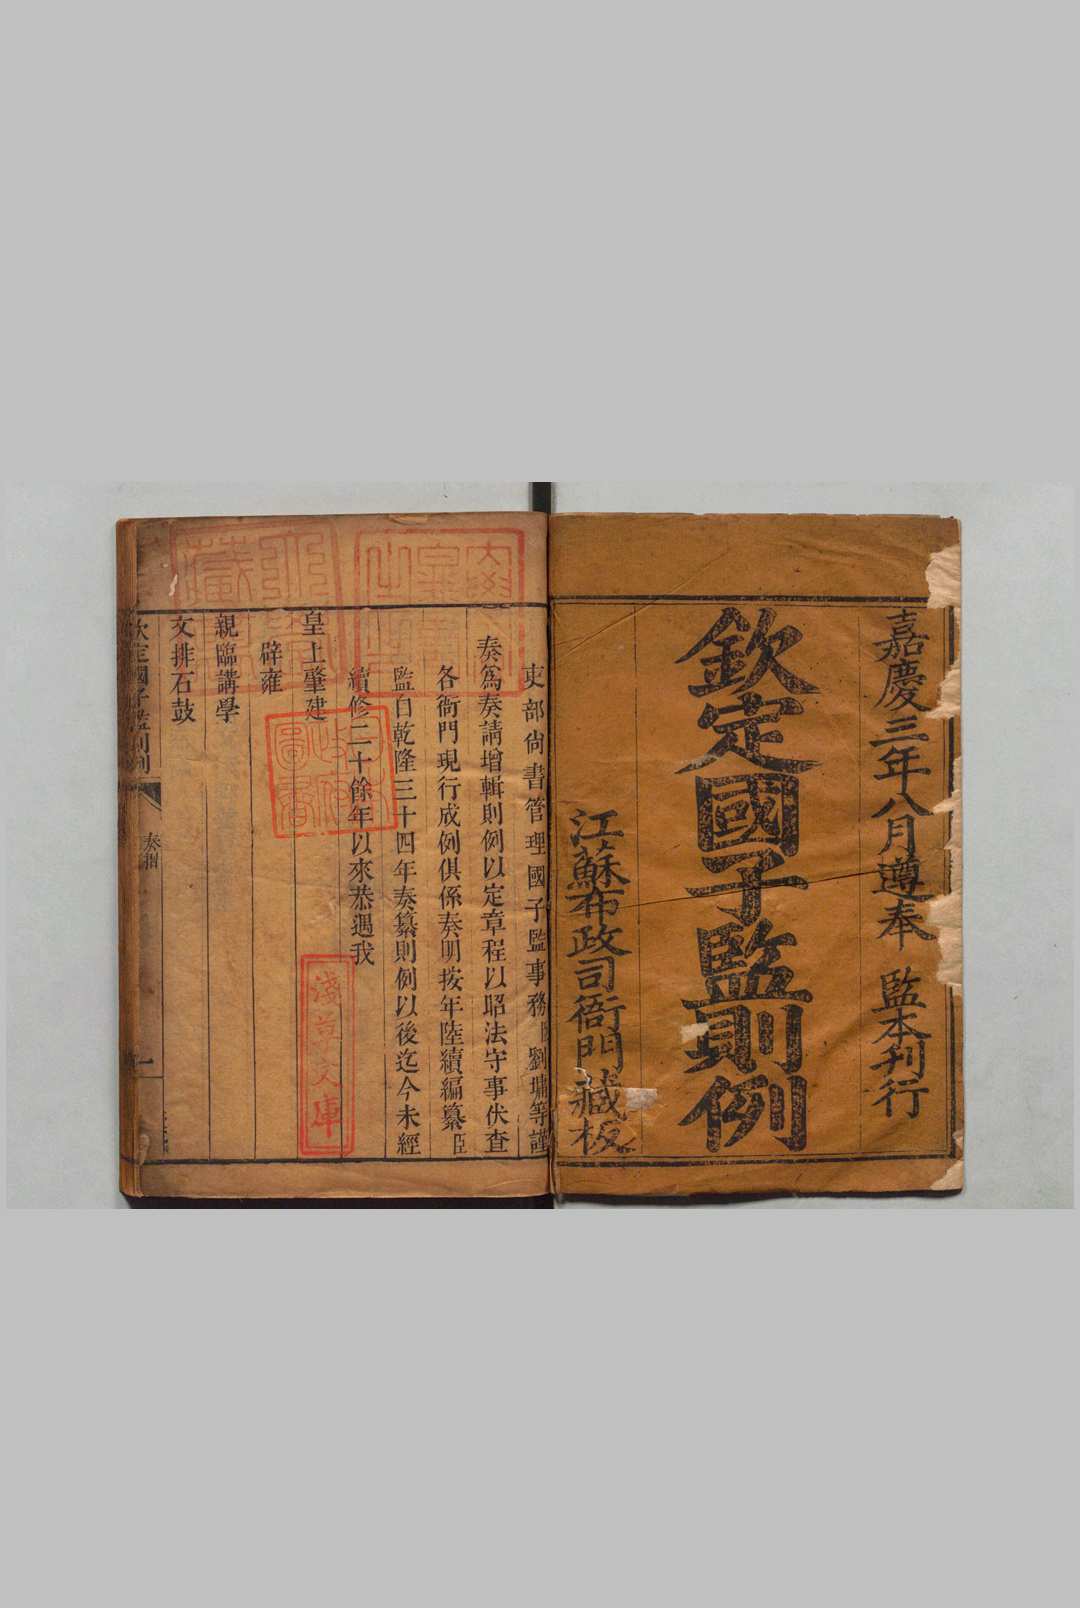 嘉慶三年八月遵奉 監本刊行
欽定國子監則例
江蘇布政司衙門藏板
吏部尙書管理國子監事務臣劉墉等謹
奏爲奏請增輯則例以定章程以昭法守事伏查
各衙門現行成例俱係奏明按年陸續編纂臣
監自乾隆三十四年奏纂則例以後迄今未經
續修二十餘年以來恭遇我
皇上肇建
辟雍
親臨講學
文排石鼓
欽定國子監則例
奏摺
一
淺草文庫
圖書